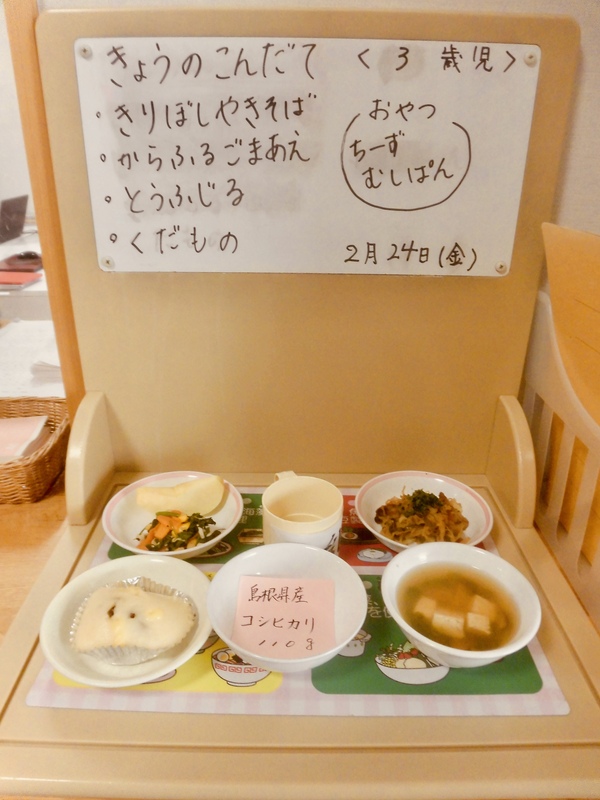 きょうのこんだて 〈 3 歳児 〉
・きりぼしやきそば
・からふるごまあえ
・とうふじる
・くだもの
おやつ
ちーず
むしぱん
2月24日(金)
島根県産
コシヒカリ
110g